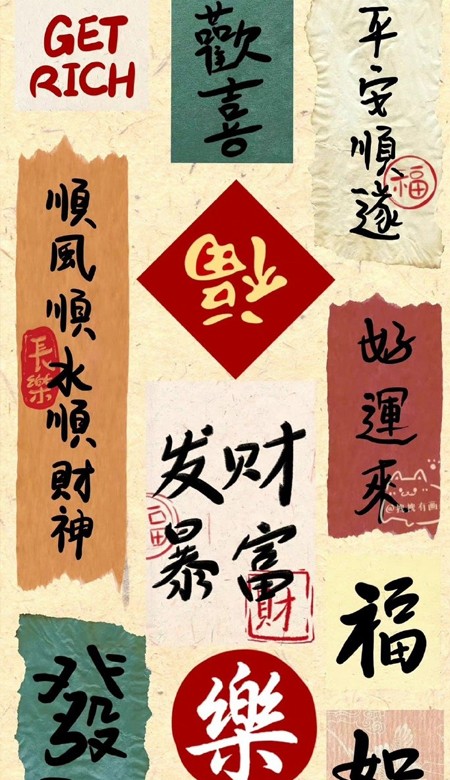 GET
RICH
歡喜
平安順遂
福
順風順水順財神
長樂
福
好運來
@搜搜有画
发财
暴富
財
福
發
樂
如